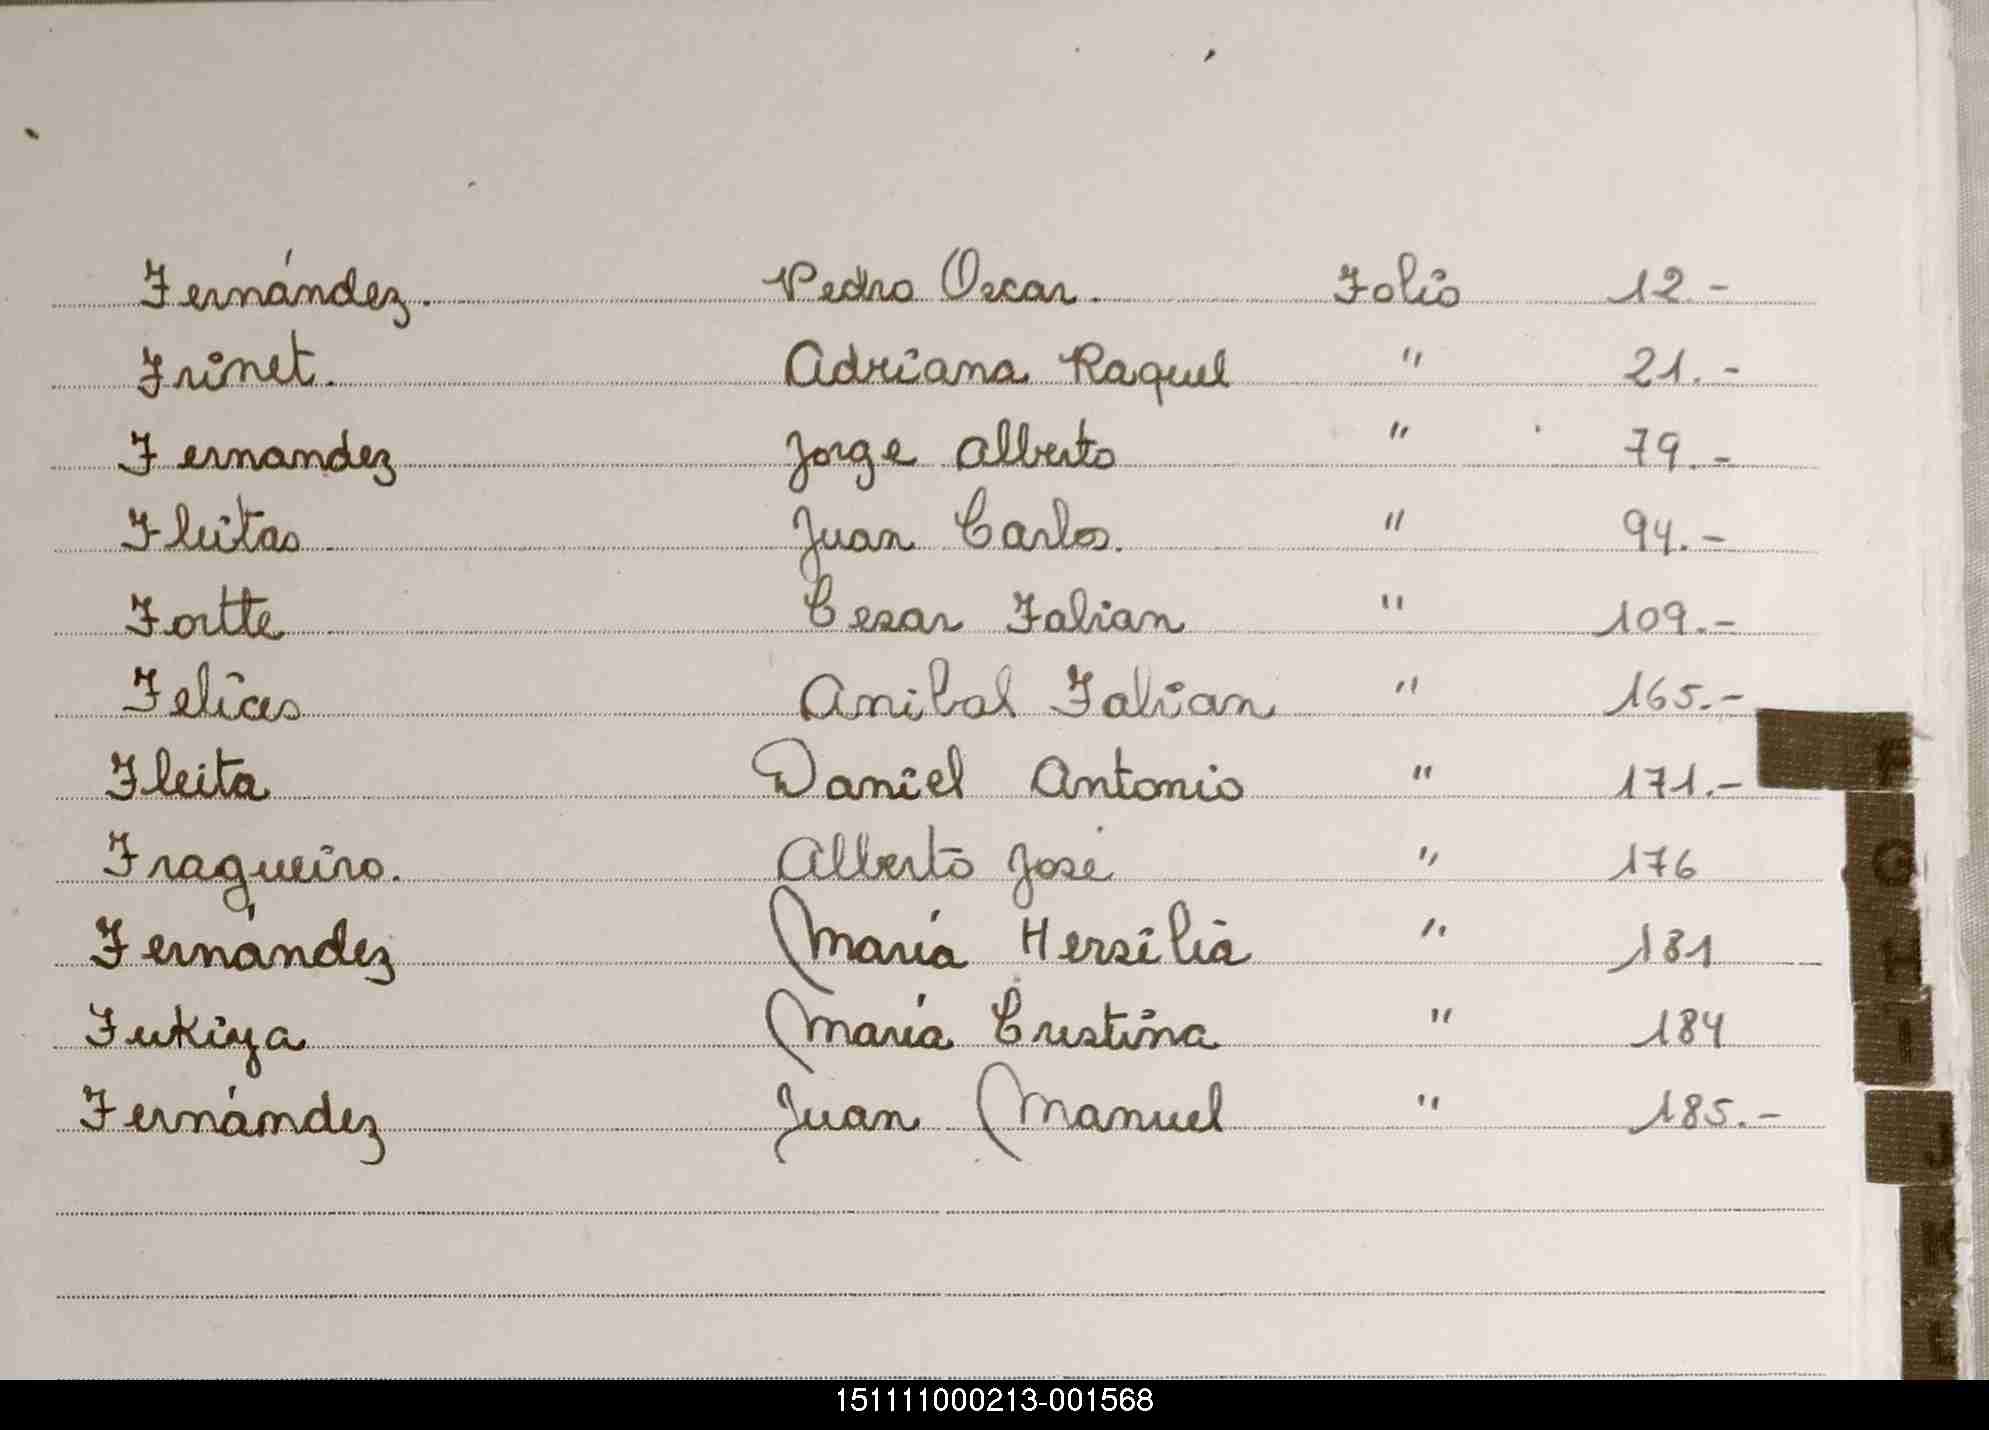 Fernández. Pedro Oscar. Folio 12.-
Frinet. Adriana Raquel " 21.-
Fernandez Jorge Alberto " 79.-
Fleitas Juan Carlos. " 94.-
Fortte Cesar Fabian " 109.-
Felices Anibal Fabian " 165.-
Fleita Daniel Antonio " 171.-
F
Fragueiro. Alberto José " 176
G
Fernández María Hersilia " 181
H
Fukiya María Cristina " 184
I
Fernández Juan Manuel " 185.-
J
K
L
151111000213-001568